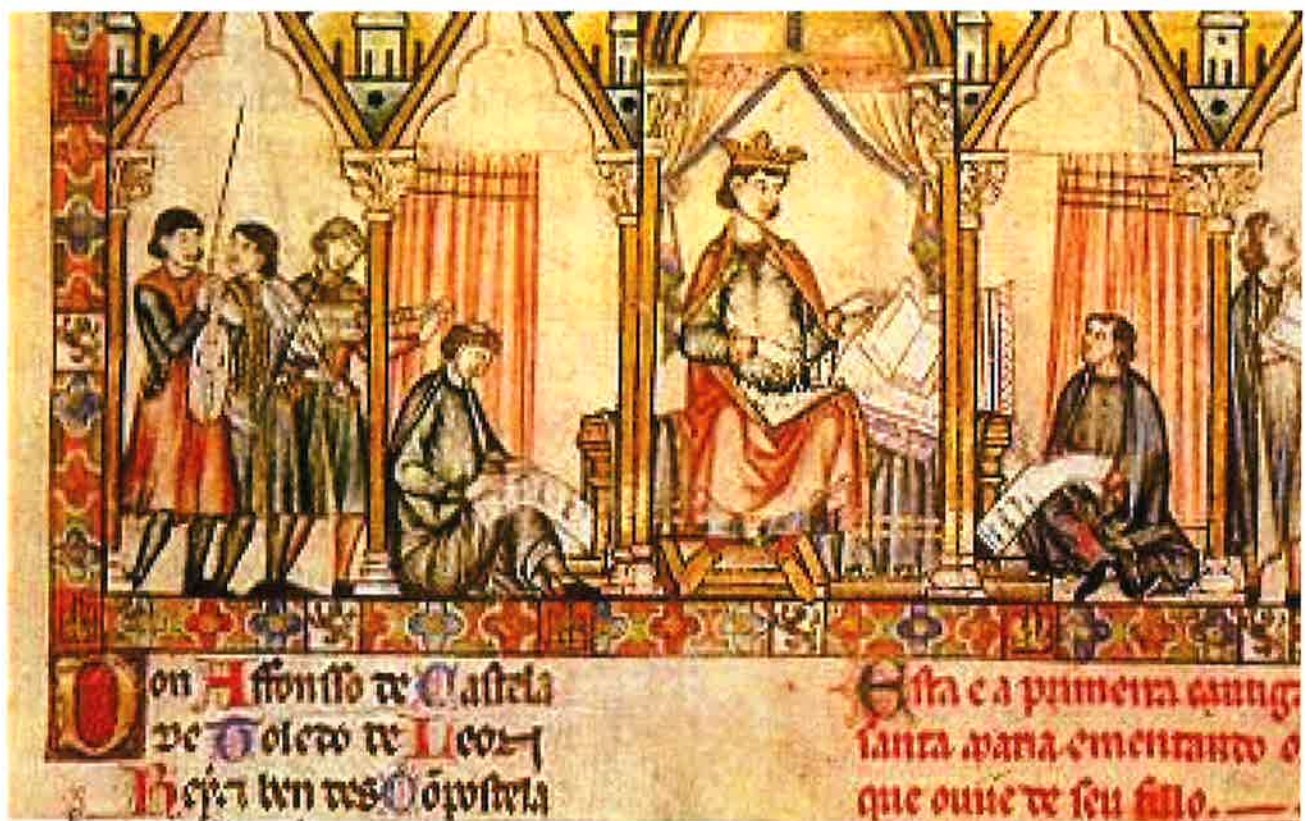 Don Affonsso de Castela
de Toledo de Leon
Rey e ben des Cōpostela
Esta e a primeira cantiga
santa maria ementando o
que ouue de seu fillo.